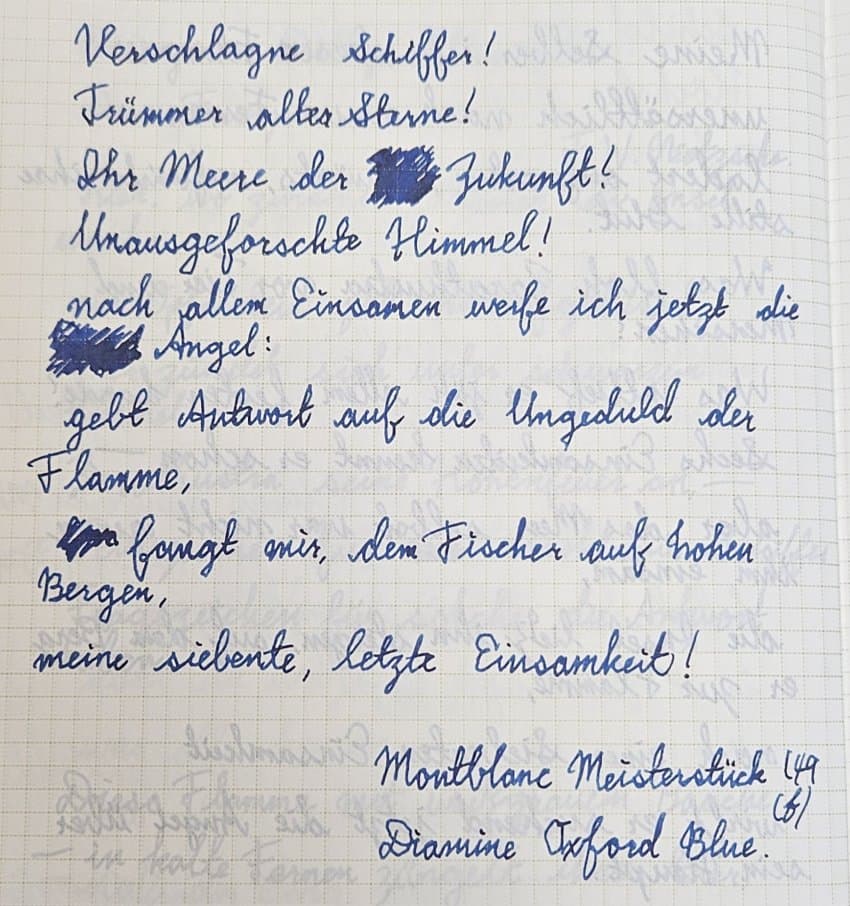 Verschlagne Schiffer!
Trümmer alter Sterne!
Ihr Meere der Zukunft!
Unausgeforschte Himmel!
nach allem Einsamen werfe ich jetzt die
Angel:
gebt Antwort auf die Ungeduld der
Flamme,
fangt mir, dem Fischer auf hohen
Bergen,
meine siebente, letzte Einsamkeit!
Montblanc Meisterstück 149
(f)
Diamine Oxford Blue.